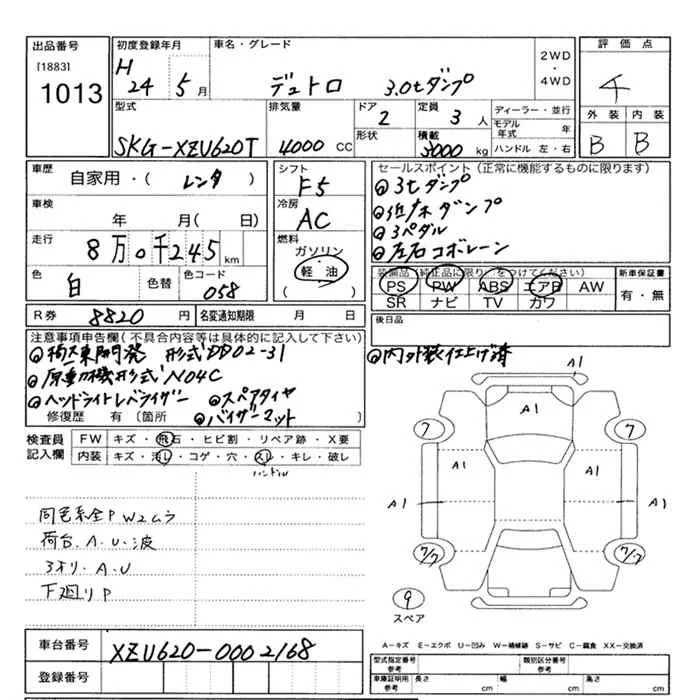 出品番号
[1883]
1013
初度登録年月
H
24 5 月
車名・グレード
デュトロ 3.0tダンプ
2WD
・
4WD
評価点
4
外装 内装
B B
型式
SKG-XZU620T
排気量
4000 CC
ドア
2
形状
定員
3 人
積載
3000 kg
ディーラー・並行
モデル
年式 年
ハンドル 左・右
車歴
自家用・( レンタ )
車検
年 月( 日)
走行
8 万 0 千 245 km
色
白
色替
色コード
058
シフト
F5
冷房
AC
燃料
ガソリン
軽・油
( )
セールスポイント (正常に機能するものに限ります)
3tダンプ
3ペダル
左右コボレーン
装備品(純正品に限り○をつけてください)
PS PW ABS エアB AW
SR ナビ TV カワ
新車保証書
有・無
R券 8820 円
名変通知期限 月 日
後日品
内外装仕上げ済
注意事項申告欄(不具合内容等は具体的に記入して下さい)
極東開発 形式DD02-31
原動機形式N04C
ヘッドライトレバライザー スペアタイヤ
修復歴 有 〔箇所 バイザーマット 〕
検査員
記入欄
FW キズ・飛石・ヒビ割・リペア跡・X要
内装 キズ・汚レ・コゲ・穴・スレ・キレ・破レ
ハンドル
同色系全P W2ムラ
荷台.A.U.波
3オリ.A.U
下廻りP
A1
A1
7 7
A1 A1
A1 A1
7/7 7/7
9
スペア
車台番号
XZU620-0002168
登録番号
A=キズ E=エクボ U=凹み W=補修跡 S=サビ C=腐食 XX=交換済
型式指定番号
参考
類別区分番号
参考
車庫証明用
参考
長さ cm
幅 cm
高さ cm